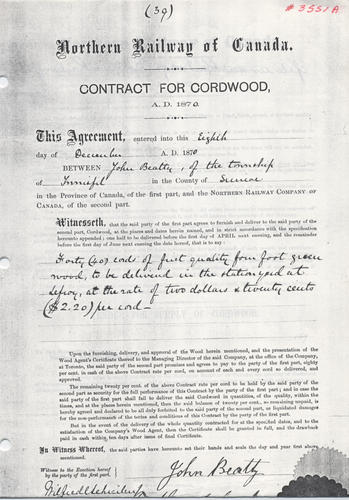 (39)
# 3551A
Northern Railway of Canada.
CONTRACT FOR CORDWOOD,
A. D. 1870.
This Agreement, entered into this Eighth
day of December A. D. 1870
BETWEEN John Beatty, of the township
of Innisfil in the County of Simcoe
in the Province of Canada, of the first part, and the NORTHERN RAILWAY COMPANY OF
CANADA, of the second part.
Witnesseth, that the said party of the first part agrees to furnish and deliver to the said party of the
second part, Cordwood, at the places and dates herein named, and in strict accordance with the specification
hereunto appended; one half to be delivered before the first day of APRIL next ensuing, and the remainder
before the first day of June next ensuing the date hereof, that is to say:
Forty (40) cords of first quality four foot green
wood, to be delivered in the station yard at
Lefroy, at the rate of two dollars & twenty cents
($2.20) per cord
Upon the furnishing, delivery, and approval of the Wood herein mentioned, and the presentation of the
Wood Agent's Certificate thereof to the Managing Director of the said Company, at the office of the Company,
at Toronto, the said party of the second part promises and agrees to pay to the party of the first part, eighty
per cent. in cash of the above Contract rate per cord, on account of each and every cord so delivered, and
approved.
The remaining twenty per cent. of the above Contract rate per cord to be held by the said party of the
second part as security for the full performance of this Contract by the party of the first part; and in case the
said party of the first part shall fail to deliver the said Cordwood in quantities, of the quality, within the
times, and at the places herein mentioned, then the said balance of twenty per cent., so remaining unpaid, is
hereby agreed and declared to be all duly forfeited to the said party of the second part, as liquidated damages
for the non-performance of the terms and conditions of this Contract by the party of the first part.
But in the event of the delivery of the whole quantity contracted for at the specified dates, and to the
satisfaction of the Company's Wood Agent, then the Certificate shall be granted in full, and the drawback
paid in cash within ten days after issue of final Certificate.
In Witness Whereof, the said parties have hereunto set their hands and seals the day and year first above
mentioned.
Witness to the Execution hereof
by the party of the first part.
John Beatty